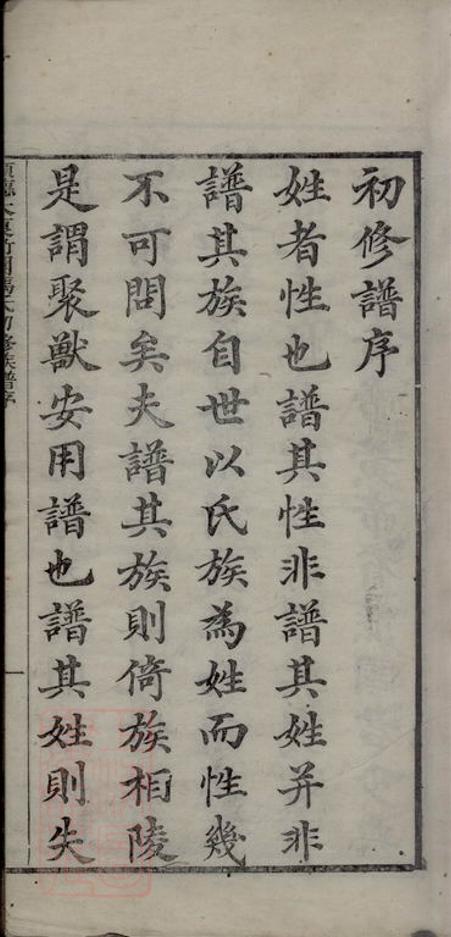 初修譜序
姓者性也譜其性非譜其姓并非
譜其族自世以氏族為姓而性幾
不可問矣夫譜其族則倚族相陵
是謂聚獸安用譜也譜其姓則失